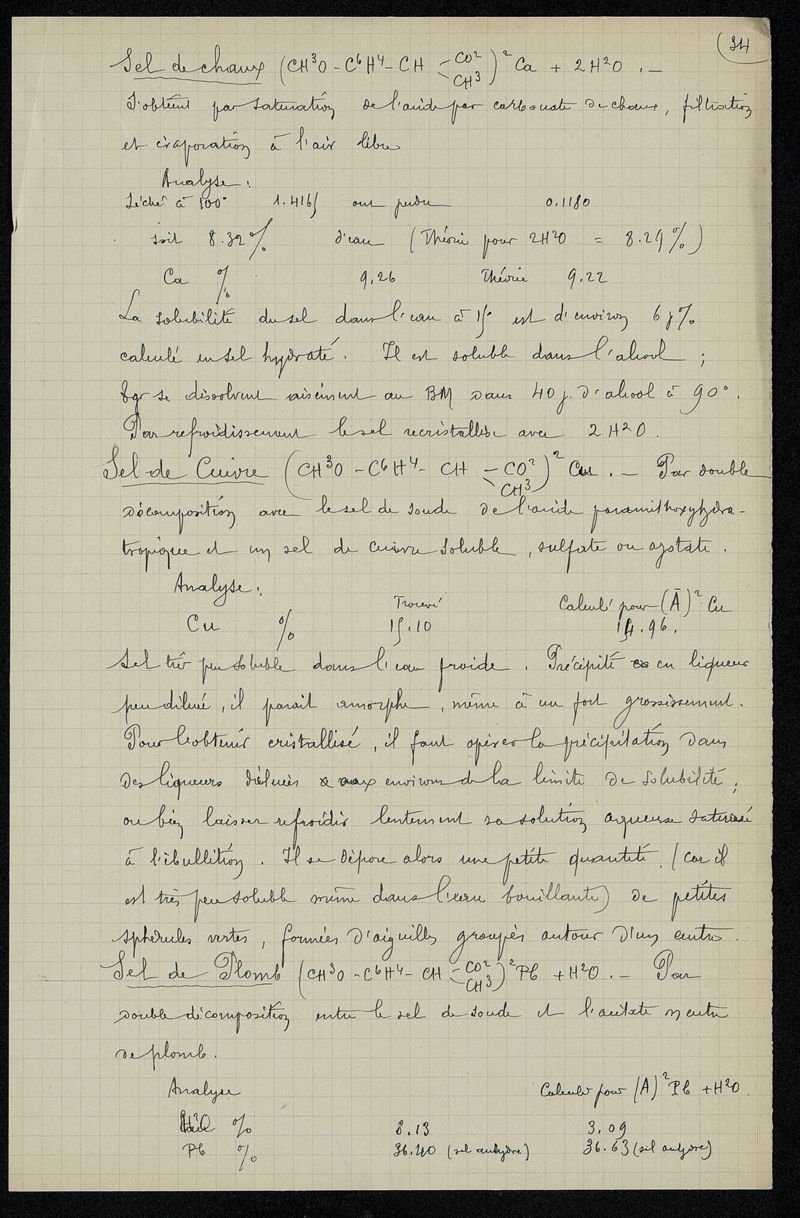 34
Sel de chaux (CH³O - C⁶H⁴ - CH - CO² CH³)² Ca + 2H²O . —
S'obtient par saturation de l'acide par carbonate de chaux, filtration
et évaporation à l'air libre
Analyse :
Séché à 100° 1.4165 ont perdu 0.1180
soit 8.32 % d'eau (Théorie pour 2H²O = 8.29 %)
Ca % 9.26 Théorie 9.22
La solubilité du sel dans l'eau à 15° est d'environ 6 g %
calculé en sel hydraté. Il est soluble dans l'alcool ;
gr se dissolvent aisément au BM dans 40 g. d'alcool à 90°.
Par refroidissement le sel recristallise avec 2H²O.
Sel de Cuivre (CH³O - C⁶H⁴ - CH - CO² CH³)² Cu . — Par double
décomposition avec le sel de soude de l'acide paraméthoxyhydra-
tropique et un sel de cuivre soluble, sulfate ou azotate.
Analyse :
Trouvé Calculé pour (Ā)² Cu
Cu % 15.10 14.96.
Sel très peu soluble dans l'eau froide. Précipité en liqueur
peu diluée, il parait amorphe, même à un fort grossissement.
Pour l'obtenir cristallisé, il faut opérer la précipitation dans
des liqueurs diluées aux environs de la limite de solubilité ;
ou bien laisser refroidir lentement sa solution aqueuse saturée
à l'ébullition. Il se dépose alors une petite quantité (car il
est très peu soluble même dans l'eau bouillante) de petites
sphérules vertes, formées d'aiguilles groupées autour d'un centre.
Sel de Plomb (CH³O - C⁶H⁴ - CH - CO² CH³)² Pb + H²O . — Par
double décomposition entre le sel de soude et l'acétate neutre
de plomb.
Analyse Calculé pour (A)² Pb + H²O.
H²O % 3.13 3.09
Pb % 36.40 (sel anhydre) 36.63 (sel anhydre)